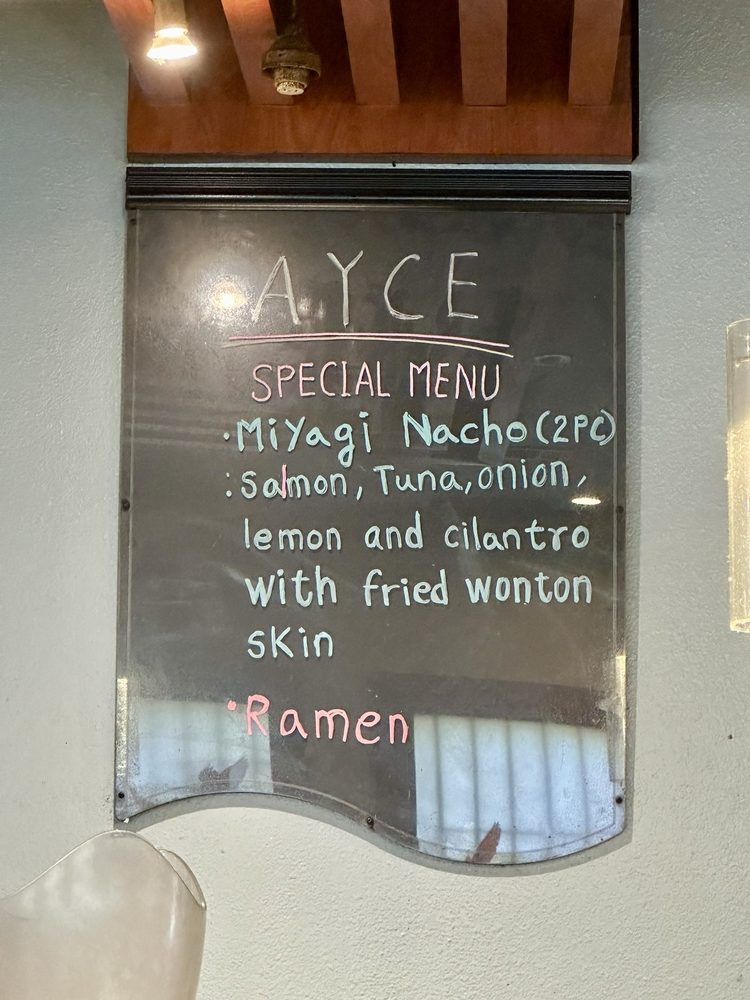 AYCE
SPECIAL MENU
·Miyagi Nacho (2PC)
:Salmon, Tuna, onion,
lemon and cilantro
with fried wonton
skin
·Ramen